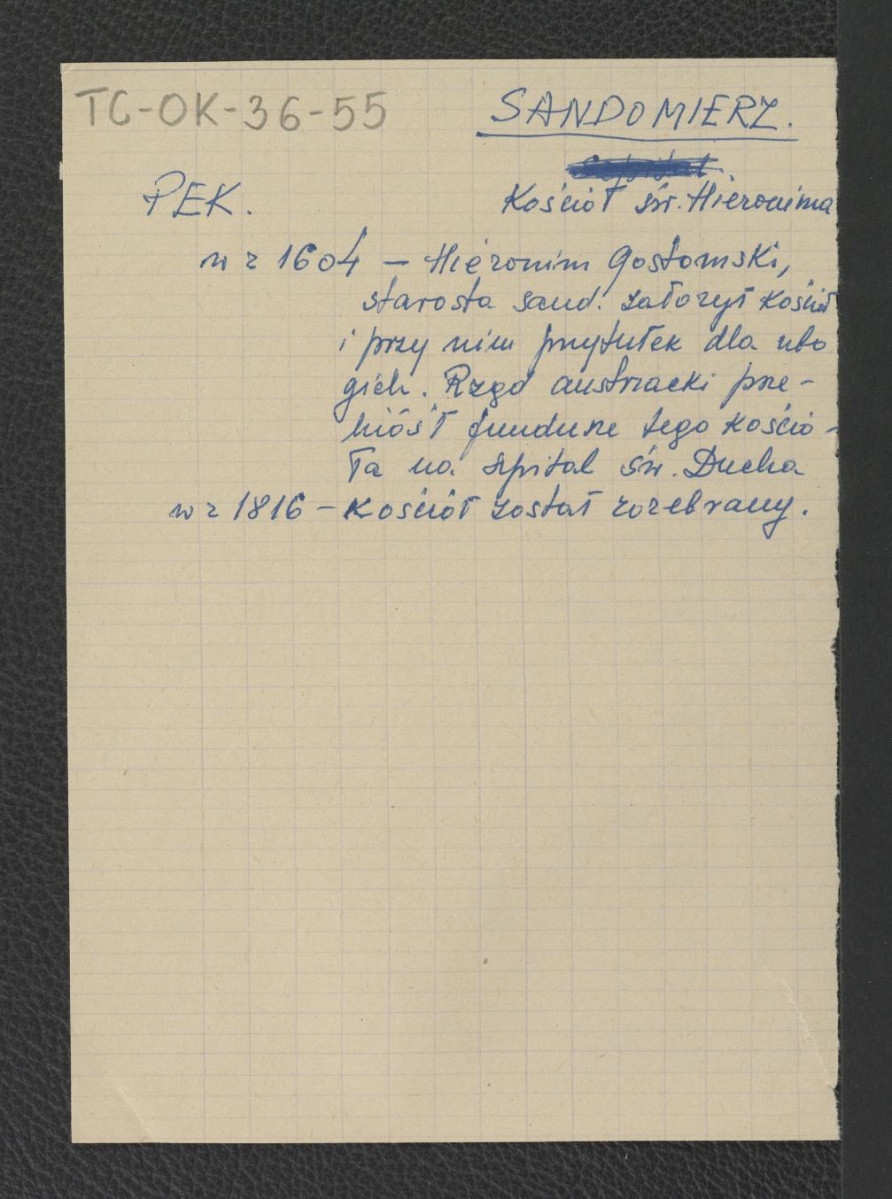 TC-OK-36-55
SANDOMIERZ.
PEK.
Kościół św. Hieronima
w r 1604 – Hieronim Gostomski,
starosta sand. założył kościół
i przy nim przytułek dla ubo
gich. Rząd austriacki prze-
niósł fundusze tego kościo-
ła na szpital św. Ducha
w r 1816 – Kościół został rozebrany.